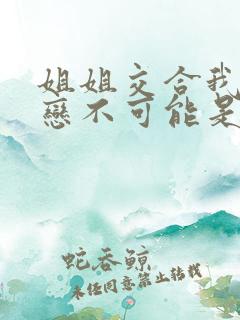 姐姐交合我
戀不可能是
蛇吞鯨
未经同意禁止转载